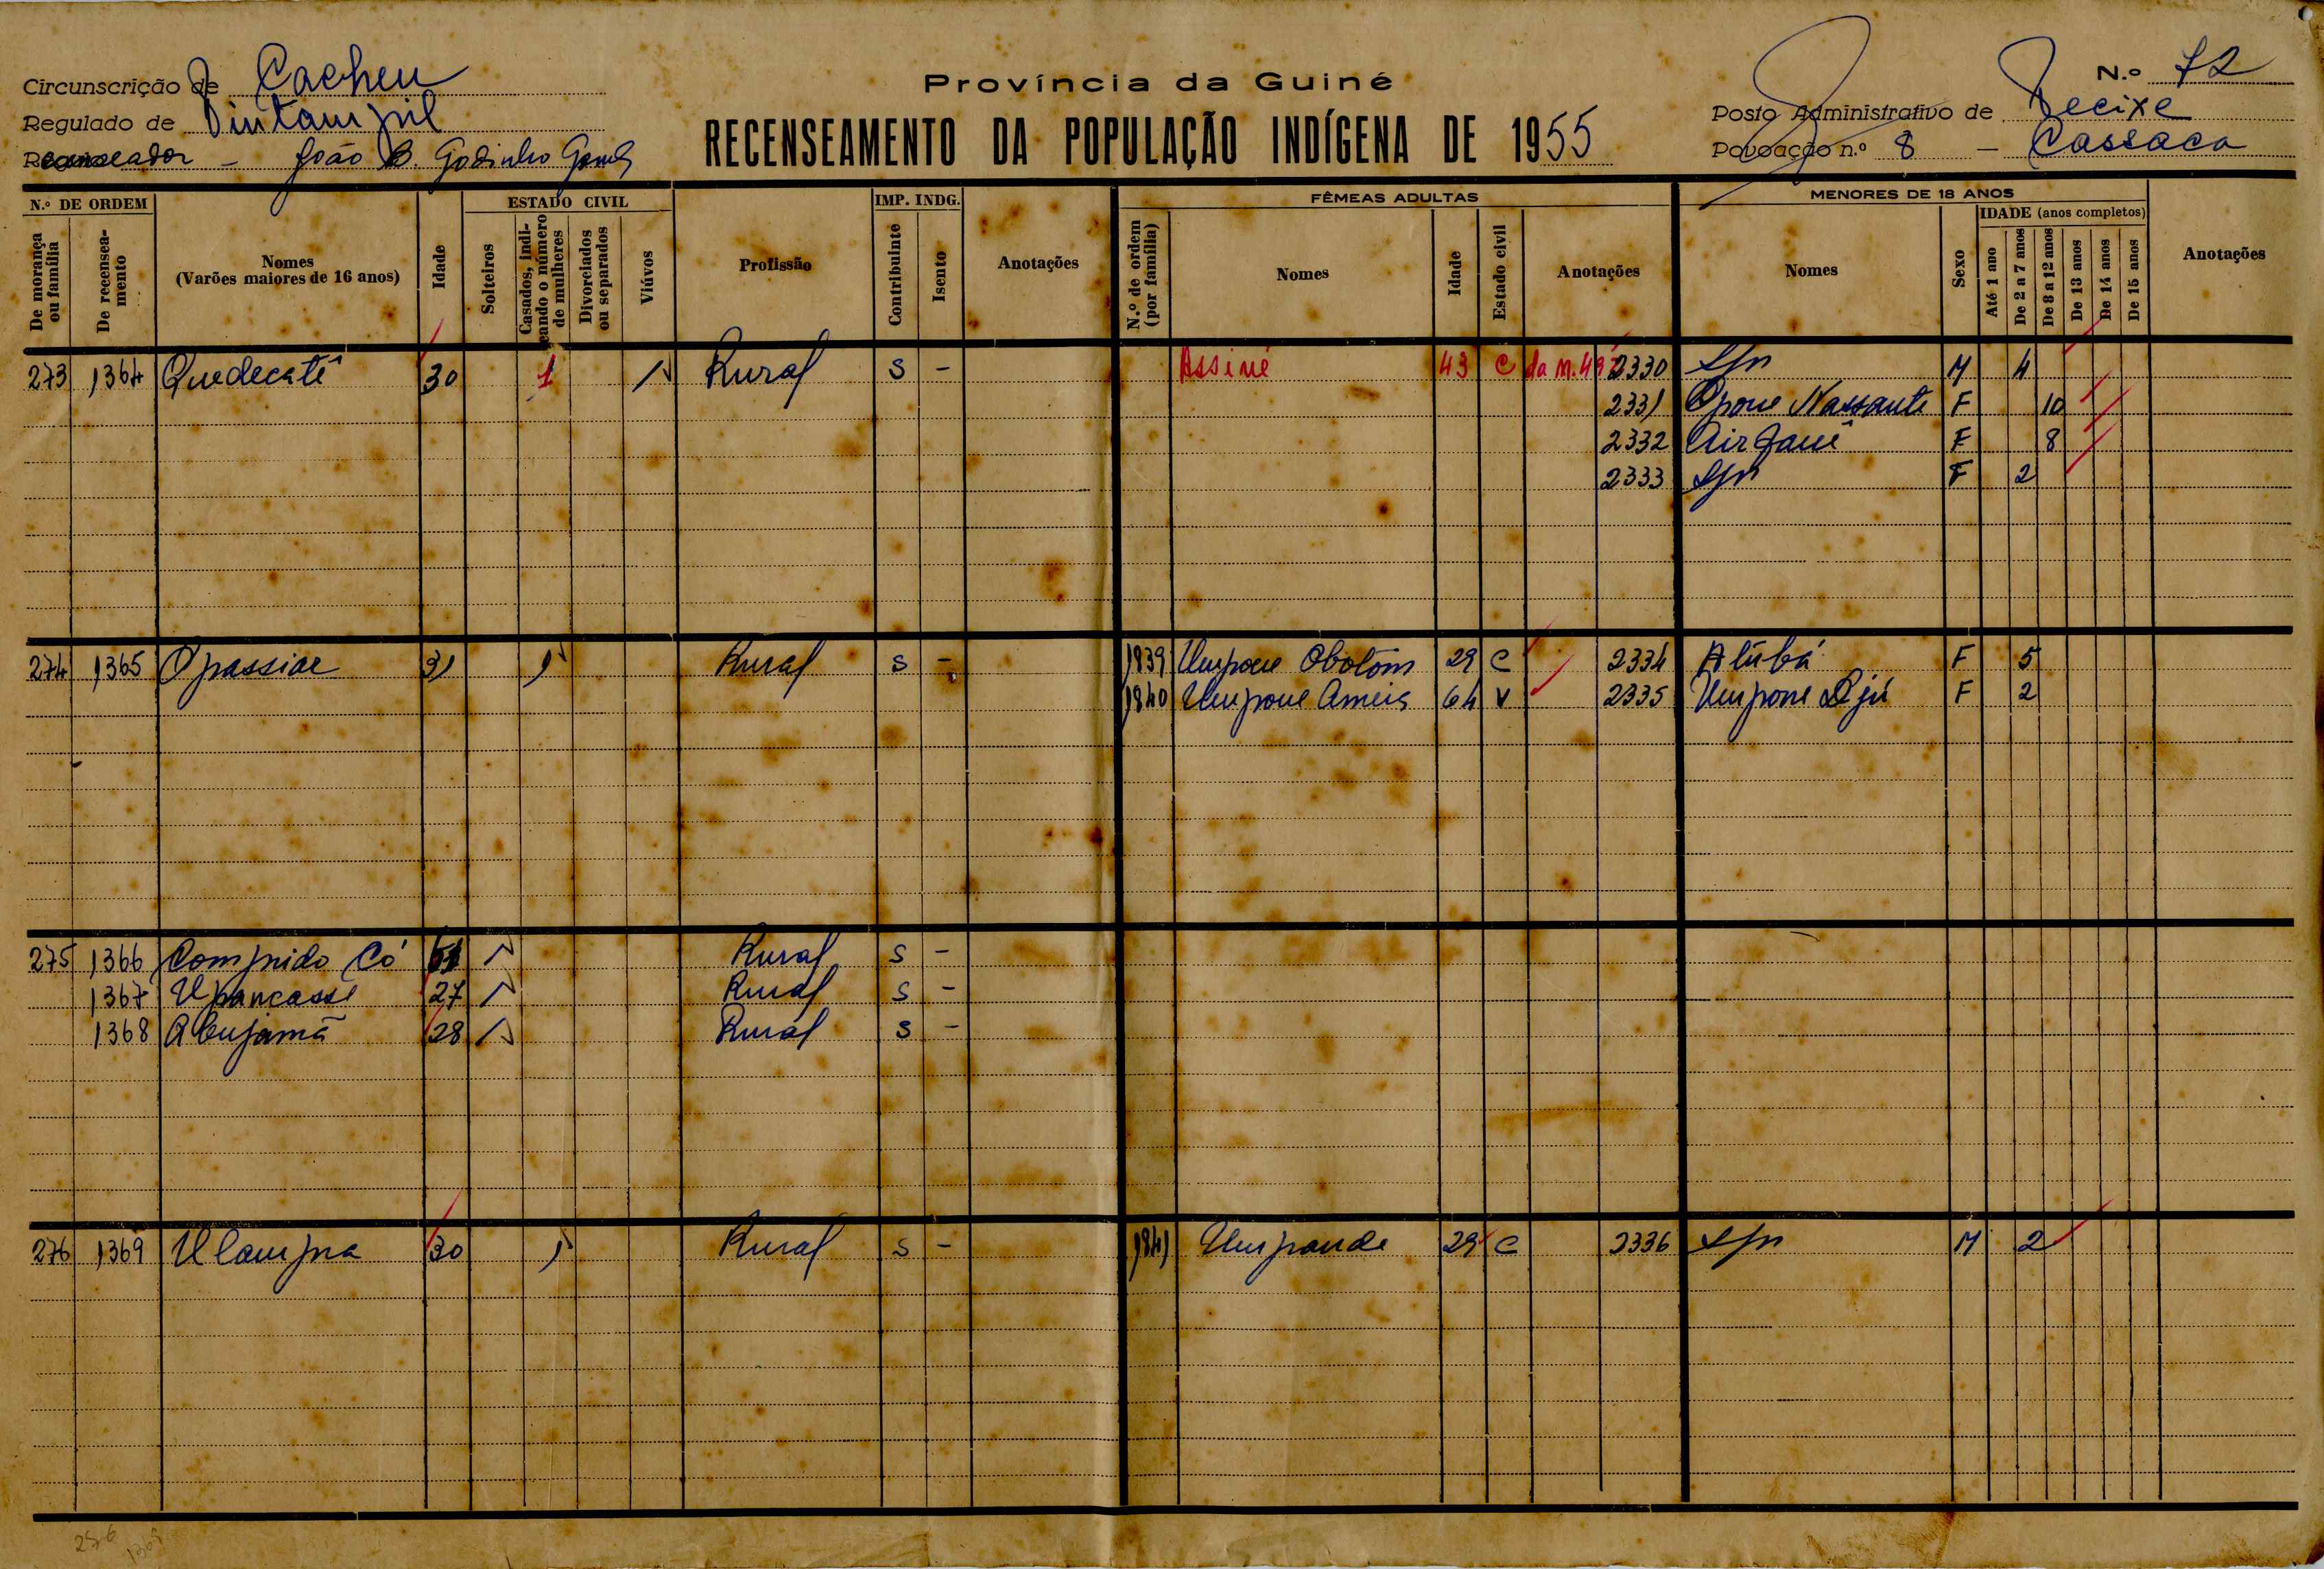 Circunscrição de Cacheu
Regulado de Pintampil
Recenseador - João B. Godinho Gomes
Província da Guiné
RECENSEAMENTO DA POPULAÇÃO INDÍGENA DE 1955
N.º 72
Posto Administrativo de Pecixe
Povoação n.º 8 - Cassaca
N.º DE ORDEM
De morança ou família
De recenseamento
Nomes
(Varões maiores de 16 anos)
Idade
ESTADO CIVIL
Solteiros
Casados, indicando o número de mulheres
Divorciados ou separados
Viúvos
Profissão
IMP. INDG.
Contribuinte
Isento
Anotações
FÊMEAS ADULTAS
N.º de ordem (por família)
Nomes
Idade
Estado civil
Anotações
MENORES DE 18 ANOS
Nomes
Sexo
IDADE (anos completos)
Até 1 ano
De 2 a 7 anos
De 8 a 12 anos
De 13 anos
De 14 anos
De 15 anos
Anotações
273 1364 Quedecatê 30 1 Rural S - Assiné 43 C da M. 2330 M 4
2331 Opone Nassante F 10
2332 F 8
2333 F 2
274 1365 Opassiar 31 1 Rural S - 1839 Umpone Obotom 29 C 2334 Atúbá F 5
1840 Umpone Ameis 64 V 2335 Umpone Djú F 2
275 1366 Comprido Có Rural S -
1367 Upancasse 27 Rural S -
1368 28 Rural S -
276 1369 Ulampra 30 1 Rural S - 1841 Umpande 29 C 2336 M 2